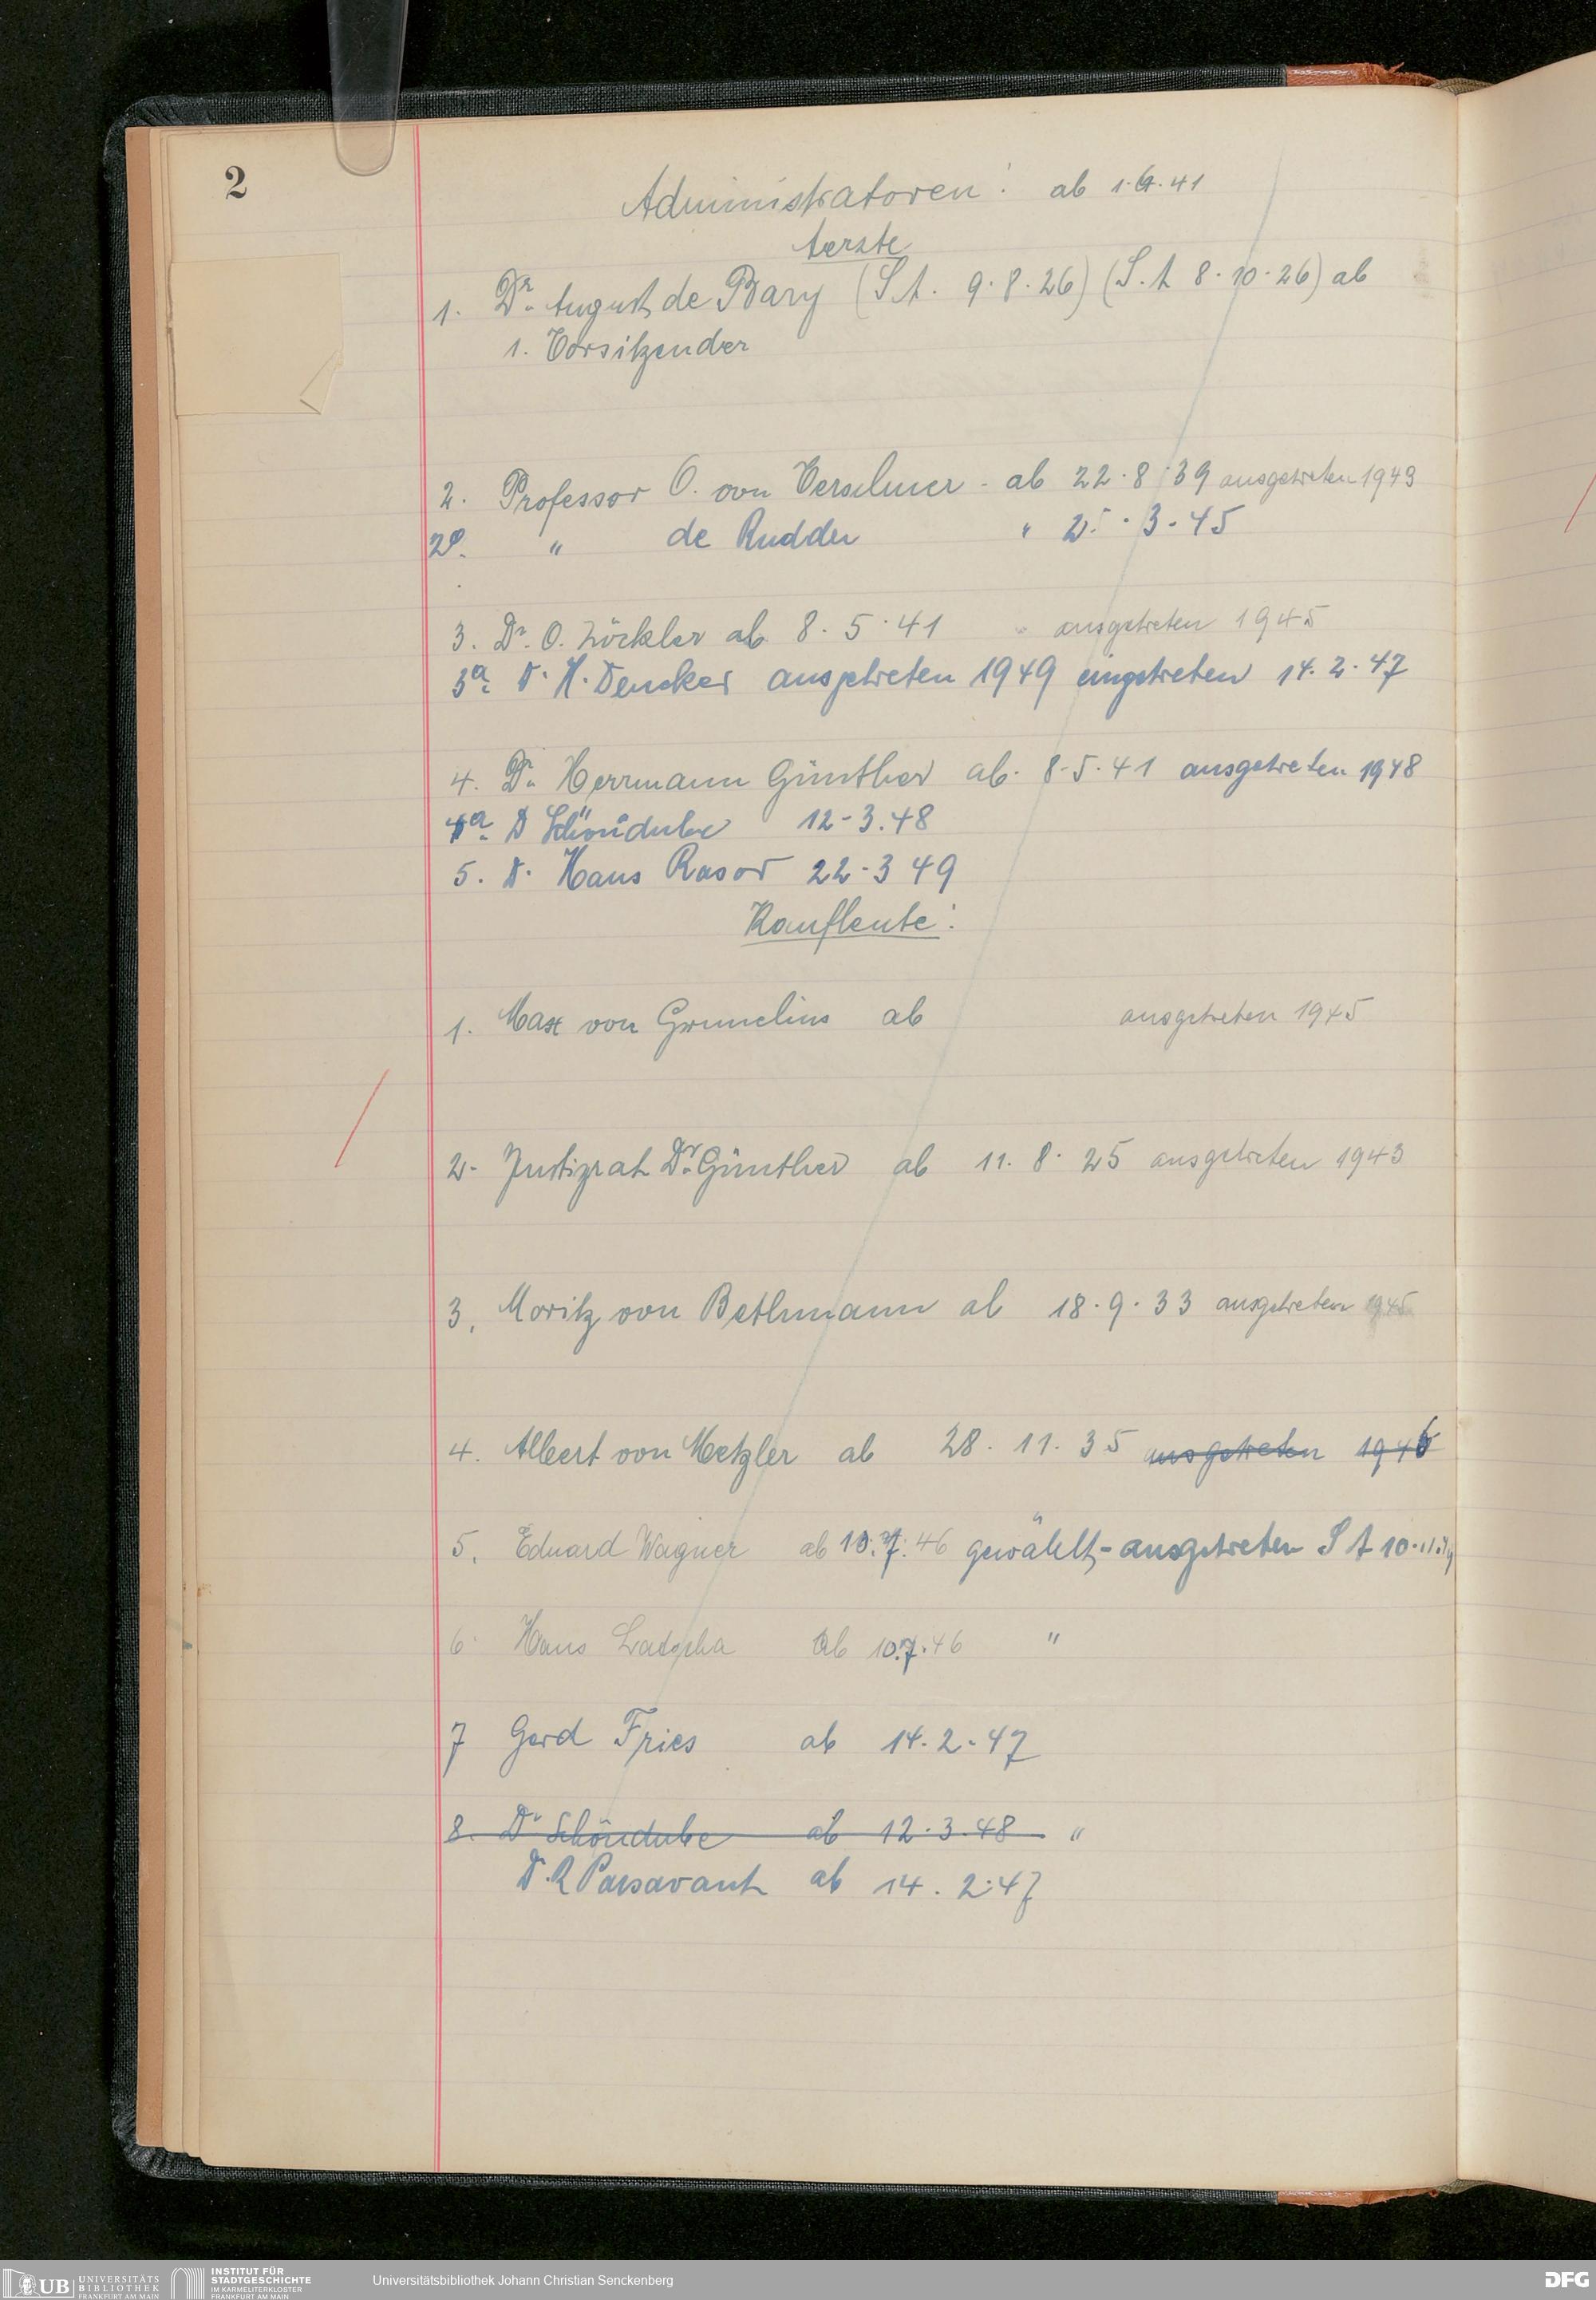 2
Administratoren: ab 1.4.41
Aerzte
1. Dr. August de Bary (S. A. 9.8.26) (S. A 8.10.26) ab
1. Vorsitzender
2. Professor O. von Verschuer - ab 22.8.39 ausgetreten 1943
2a. " de Rudder " 25.3.45
3. Dr. O. Zöckler ab 8.5.41 ausgetreten 1945
3a. D. H. Dencker ausgetreten 1949 eingetreten 14.2.47
4. Dr. Herrmann Günther ab. 8.5.41 ausgetreten 1948
4a. D Schöndube 12-3.48
5. D. Hans Rasor 22-3 49
Kaufleute:
1. Max von Grunelius ab ausgetreten 1945
2. Justizrat Dr. Günther ab 11.8.25 ausgetreten 1943
3. Moritz von Bethmann ab 18.9.33 ausgetreten 1945
4. Albert von Metzler ab 28.11.35 ausgetreten 1946
5. Eduard Wagner ab 10.7.46 gewählt, - ausgetreten S A 10.
6. Hans ab 10.7.46 "
7 Gerd Fries ab 14.2.47
8. Dr Schöndube ab 12.3.48 "
D. R Passavant ab 14.2.47
UB UNIVERSITÄTS
BIBLIOTHEK
FRANKFURT AM MAIN
INSTITUT FÜR
STADTGESCHICHTE
IM KARMELITERKLOSTER
FRANKFURT AM MAIN
Universitätsbibliothek Johann Christian Senckenberg
DFG